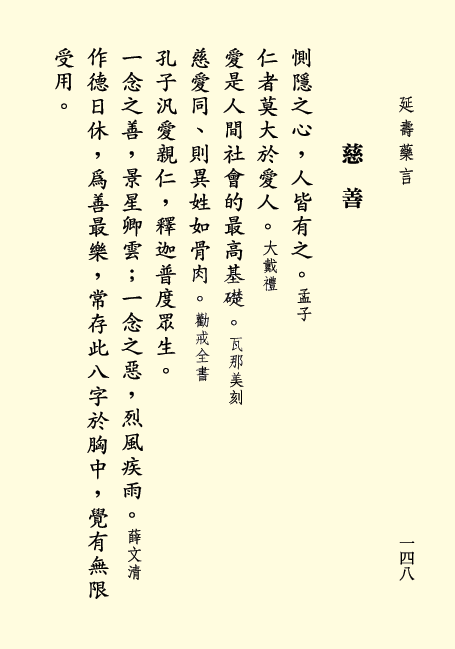 延壽藥言
一四八
慈善
惻隱之心，人皆有之。孟子
仁者莫大於愛人。大戴禮
愛是人間社會的最高基礎。瓦那美刻
慈愛同、則異姓如骨肉。勸戒全書
孔子汎愛親仁，釋迦普度眾生。
一念之善，景星卿雲；一念之惡，烈風疾雨。薛文清
作德日休，為善最樂，常存此八字於胸中，覺有無限
受用。